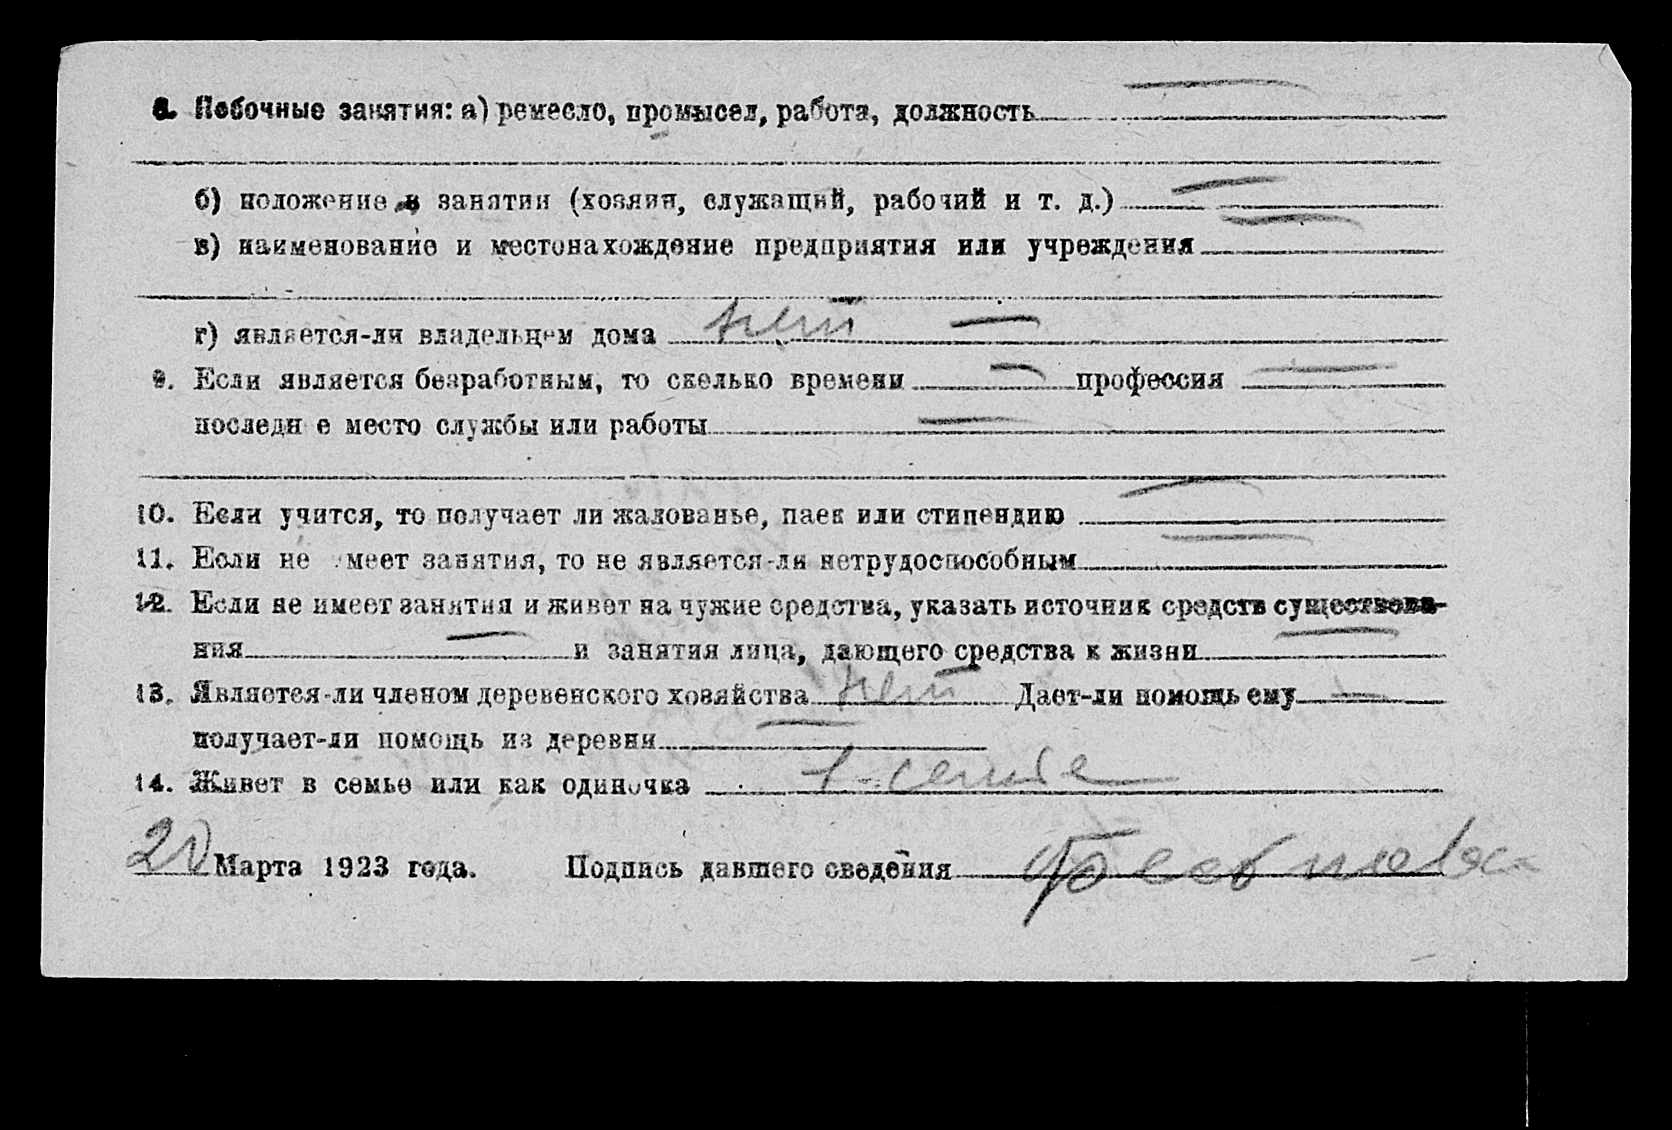 8. Побочные занятия: а) ремесло, промысел, работа, должность —
б) положение в занятии (хозяин, служащий, рабочий и т. д.) —
в) наименование и местонахождение предприятия или учреждения —
г) является-ли владельцем дома нет —
9. Если является безработным, то сколько времени — профессия —
последн е место службы или работы —
10. Если учится, то получает ли жалованье, паек или стипендию —
11. Если не имеет занятия, то не является-ли нетрудоспособным —
12. Если не имеет занятия и живет на чужие средства, указать источник средств существова-
ния — и занятия лица, дающего средства к жизни —
13. Является-ли членом деревенского хозяйства нет Дает-ли помощь ему —
получает-ли помощь из деревни —
14. Живет в семье или как одиночка в семье
20 Марта 1923 года. Подпись давшего сведения